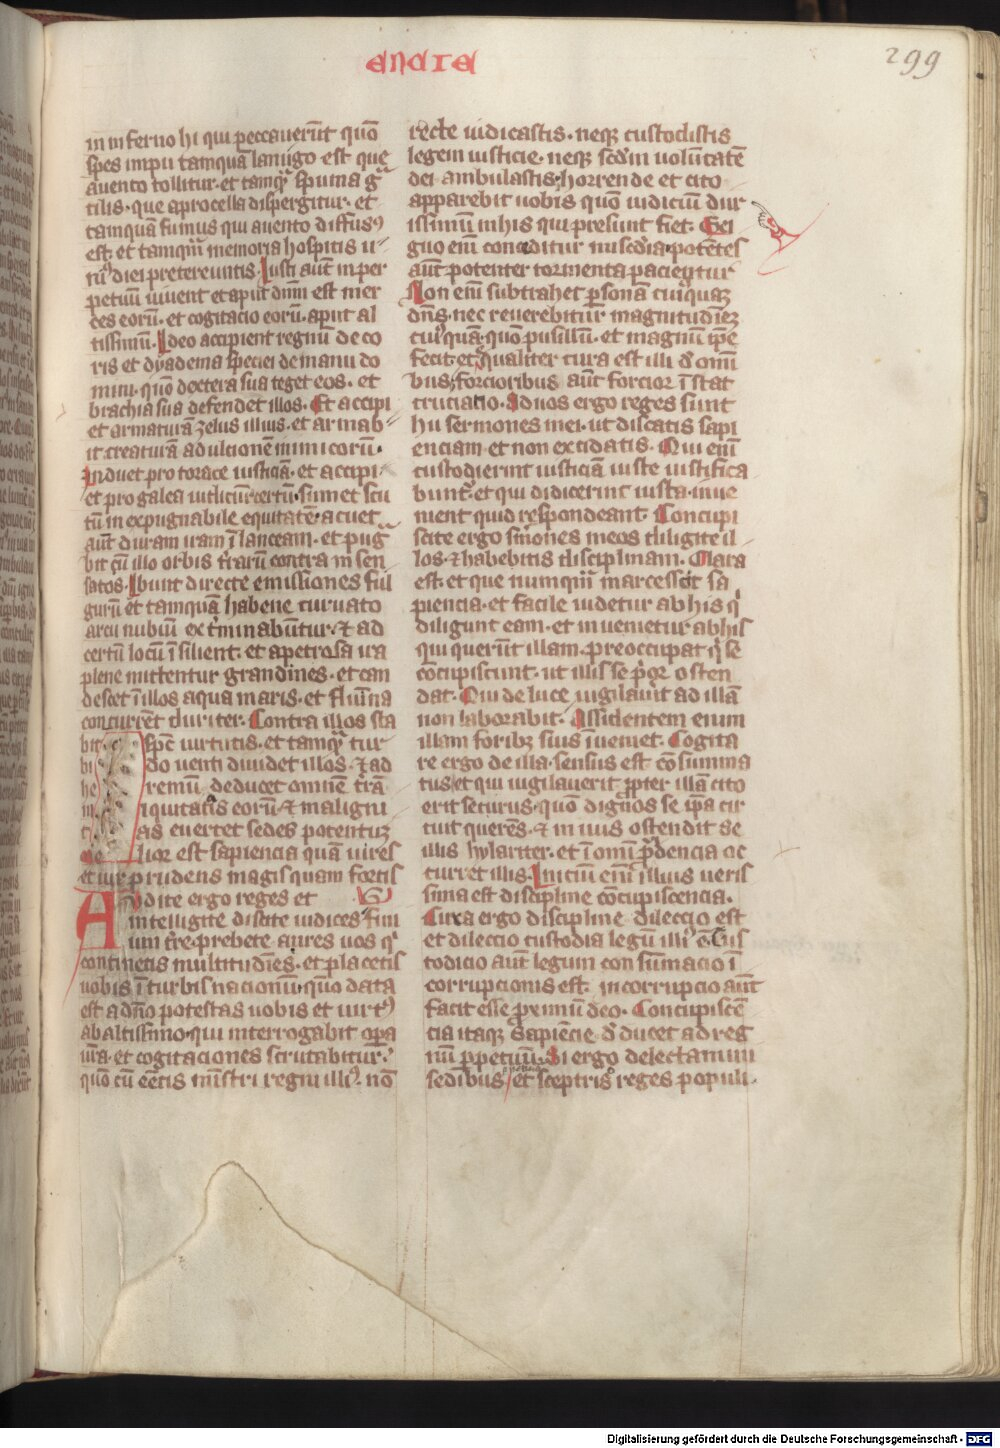 encia
299
in inferno hi qui peccauerūt quō
spes impii tamquā lanugo est que
auento tollitur · et tamqͣ spuma gͣ
tilis · que aprocella dispergitur · et
tamquā fumus qui auento diffusꝰ
est · et tamqm̄ memoria hospitis u
nꝰ diei pretereuntis · Iusti aūt in per
petuū uiuent et aput dn̄m est mer
ces eorū · et cogitacio eorū aput al
tissimū · Ideo accipient regnū deco
ris et dyadema speciei de manu do
mini · quō dextera sua teget eos · et
brachia sua defendet illos · Et accipi
et armaturā zelus illius · et armab
it creaturā ad ulcionē inimicorū ·
Induet pro torace iusticiā · et accipi
et pro galea iudiciū certū · sumet scu
tū inexpugnabile equitatē · acuet
aūt duram iram ī lanceam · et pugͣ
bit cū illo orbis t̄rarū contra insen
satos · Ibunt directe emissiones ful
gurū et tamquā habene curuato
arcu nubium ext̄minabūtur · ⁊ ad
certū locū īsilient · et apetrosa ira
plene mittentur grandines · et can
descet ī illos aqua maris · et flumīa
concurrēt duriter · Contra illos sta
bit spc̄ uirtutis · et tamqͣ tur
bi do uenti diuidet illos · ⁊ ad
he remū deducet omnē t̄rā
in iquitatis eorū ⁊ maligni
t as euertet sedes potentuꝫ
Me lior est sapiencia quā uires
et uir prudens magis quam fortis
Audite ergo reges et VI
intelligite discite iudices finiūm
ium t̄re · prebete aures uos qͥ
continetis multitudīes · et placetis
uobis ī turbis nacionū · quō data
est adn̄o potestas uobis et uirtꝰ
ab altissimo · qui interrogabit opera
ur̄a · et cogitaciones scrutabitur ·
quō cū eētis mīstri regni illiꝰ · nō
recte iudicastis · neqꝫ custodistis
legem iusticie · neqꝫ scd̄m uolūtatē
dei ambulastis · horrende et cito
apparebit uobis quō iudiciū dur
issimū inhis qui presunt fiet · Exi
guo eni̅ conceditur mīsedia · potētes
aūt potenter tormenta pacientur
Non eni̅ subtrahet ꝑsonam cuiꝰquaꝫ
dn̄s · nec reuerebitur magnitudīeꝫ
cuiꝰquā · quō pusillū · et magnū ip̄e
fecit · et equaliter cura est illi d̄ omī
bus · forcioribus aūt forcior īstat
cruciatio · Ad uos ergo reges sunt
hii sermones mei · ut discatis sapi
enciam et non excidatis · Qui eni̅
custodierint iusticiā iuste iustifica
bunt · et qui didicerint iusta · inue
nient quid respondeant · Concupi
scite ergo sm̄ones meos diligite il
los · ⁊ habebitis disciplinam · Clara
est · et que numqm̄ marcescit sa
piencia · et facile uidetur ab his qͥ
diligunt eam · et inuenietur ab his
qui querūt illam · preoccupat qͥ se
cōcupiscunt · ut illis se pͥor osten
dat · Qui de luce uigilauit ad illā
non laborabit · Assidentem enim
illam foribꝫ suis īueniet · Cogita
re ergo de illa · sensus est cōsumma
tus · et qui uigilauerit ꝓpter illā cito
erit securus · quō dignos se ip̄a cir
cuit querēs · ⁊ in uiis ostendit se
illis hylariter · et ī omī ꝓuidencia oc
curret illis · Iniciū eni̅ illius ueris
sima est discipline cōcupiscencia ·
Cura ergo discipline dileccio est
et dileccio custodia legū illiꝰ ē · Cus
todicio aūt legum consūmacio ī
corrupcionis est · incorrupcio aūt
facit esse proximū deo · Concupiscē
cia itaqꝫ sapiēcie d̄ducet ad reg
nū ꝑpetuū · Si ergo delectamini
sedibus et sceptris o reges populi ·
Digitalisierung gefördert durch die Deutsche Forschungsgemeinschaft - DFG